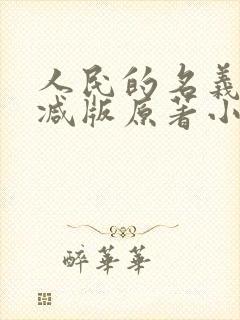 人民的名義
减版原著小
醉華華